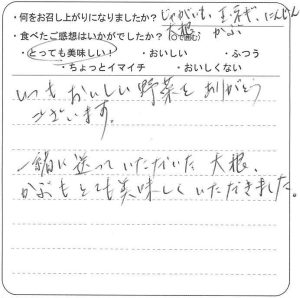 ・何をお召し上がりになりましたか？じゃがいも、玉ネギ、にんじん
大根、かぶ
・食べたご感想はいかがでしたか？（○で囲む）
・とっても美味しい！ ・おいしい ・ふつう
・ちょっとイマイチ ・おいしくない
いつもおいしい野菜をありがとう
ございます。
一緒に送っていただいた大根、
かぶもとても美味しくいただきました。